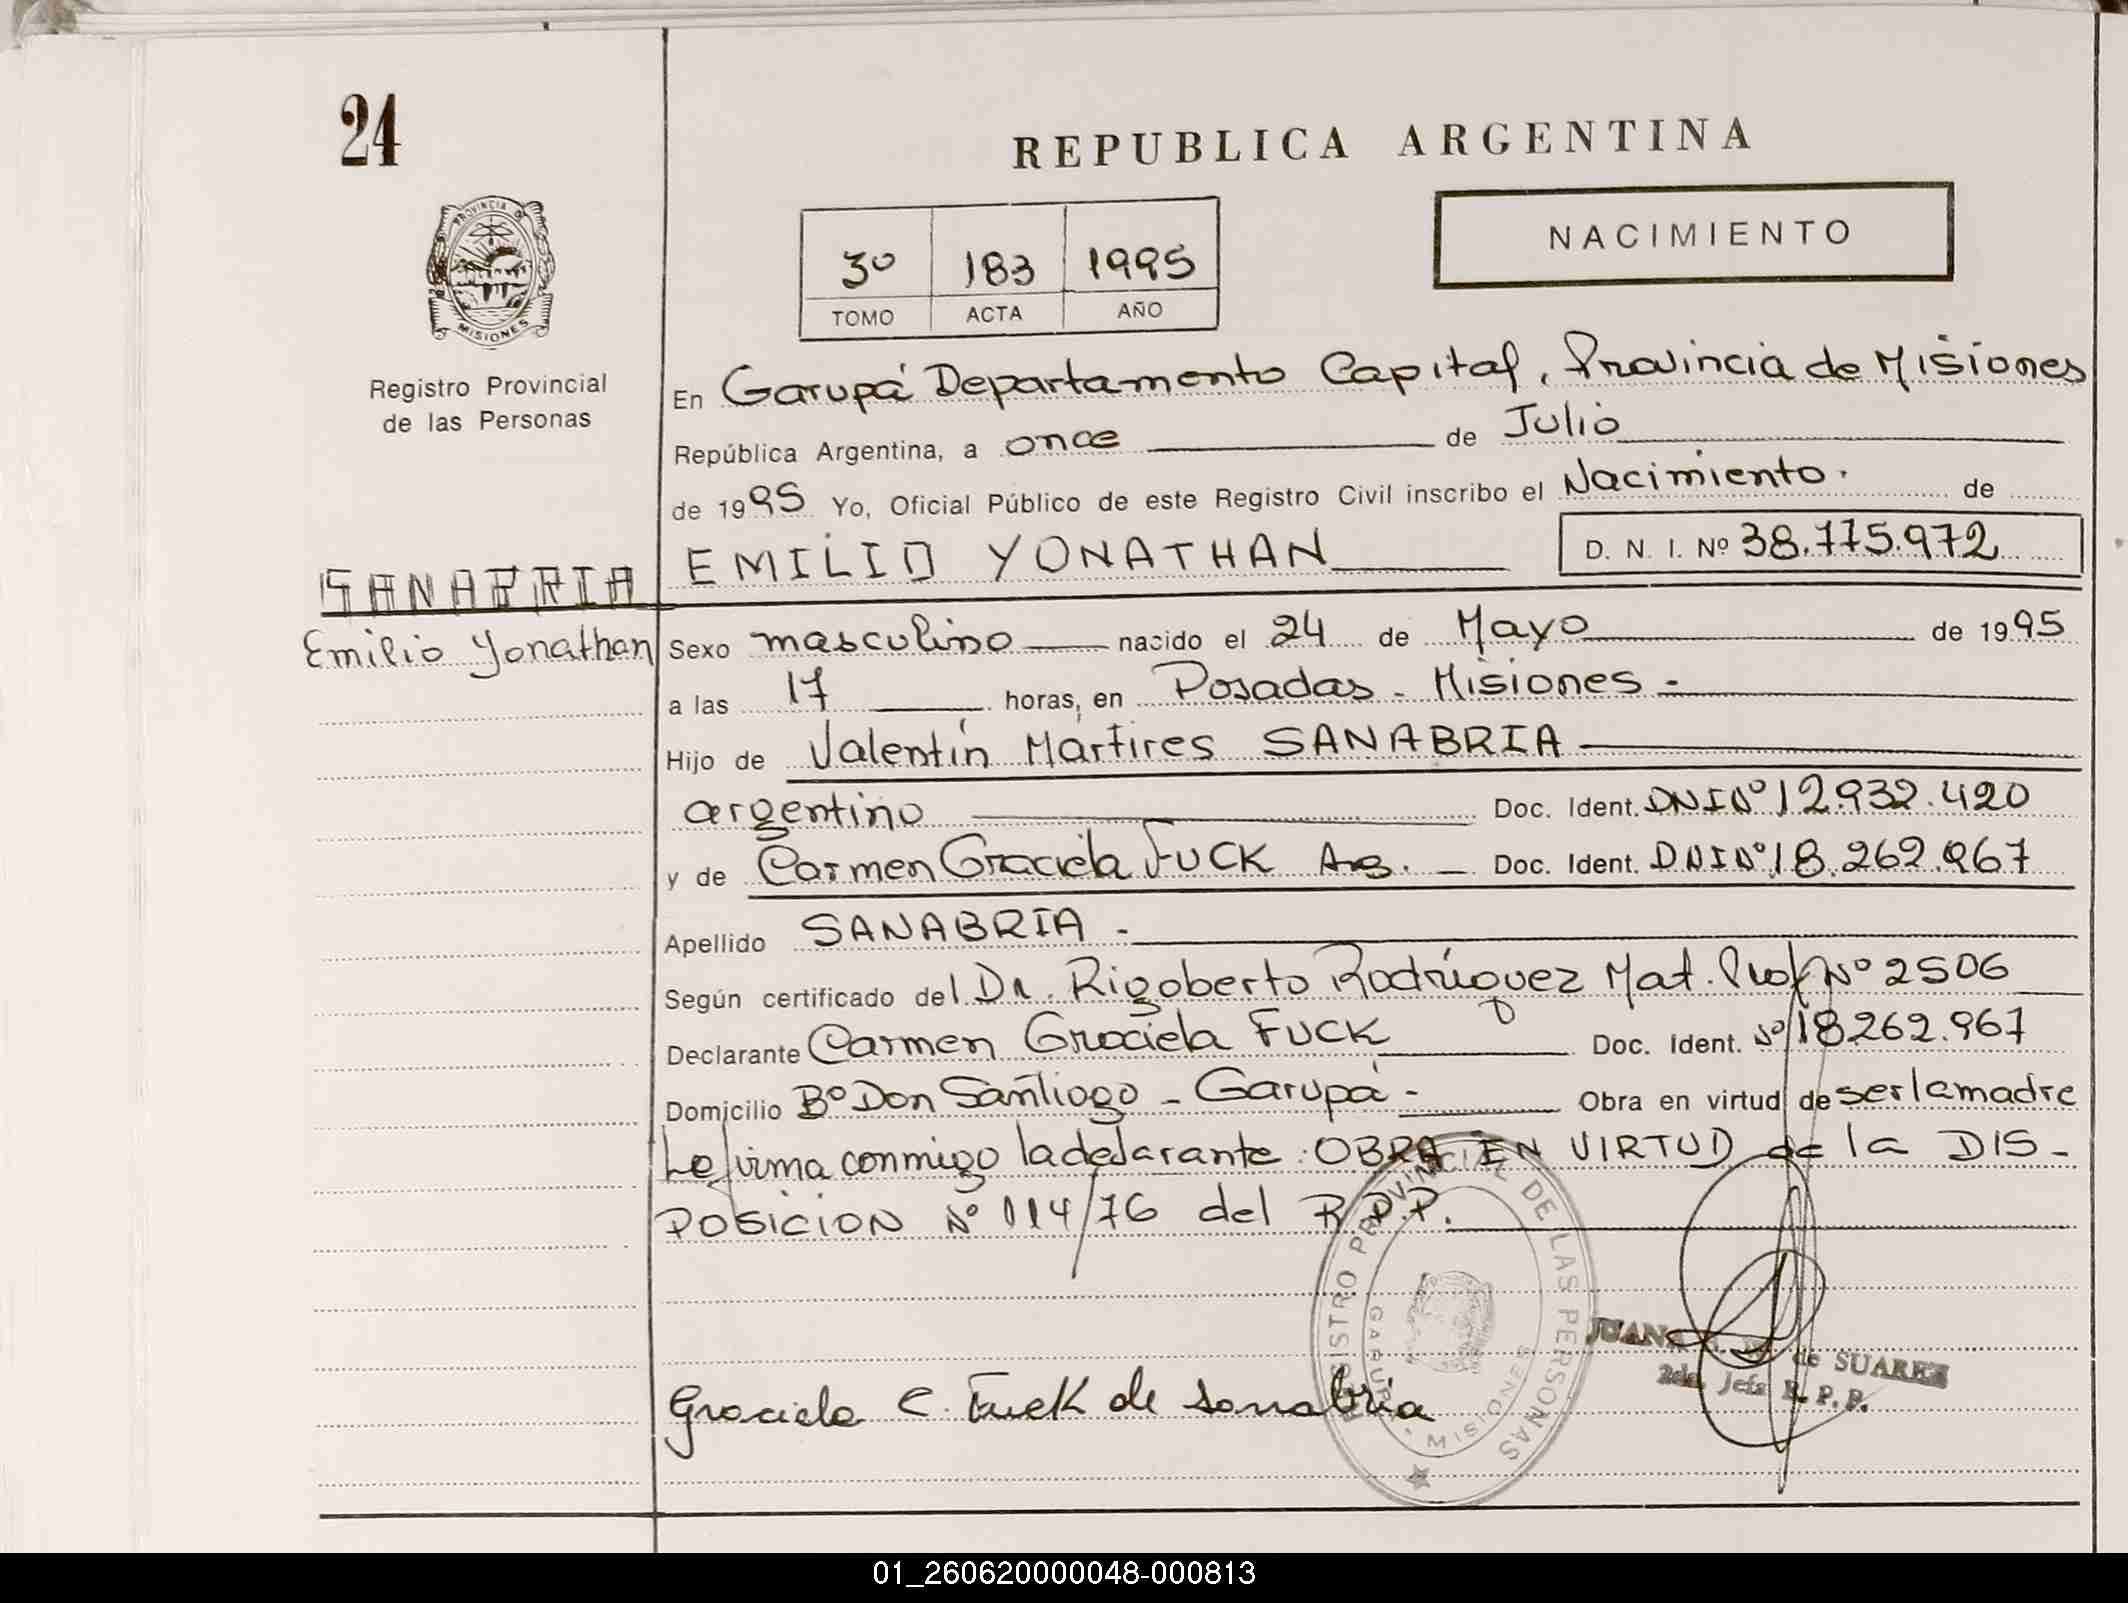 24
REPUBLICA ARGENTINA
NACIMIENTO
3º 183 1995
TOMO ACTA AÑO
PROVINCIA DE MISIONES
Registro Provincial
de las Personas
En Garupá Departamento Capital, Provincia de Misiones
República Argentina, a once de Julio
de 1995 Yo, Oficial Público de este Registro Civil inscribo el Nacimiento. de
EMILIO YONATHAN D. N. I. Nº 38.775.972
SANABRIA
Emilio Yonathan
Sexo masculino nacido el 24 de Mayo de 1995
a las 17 horas, en Posadas - Misiones -
Hijo de Valentín Martires SANABRIA
argentino Doc. Ident. DNI Nº 12.932.420
y de Carmen Graciela FUCK Arg. Doc. Ident. DNI Nº 18.262.967
Apellido SANABRIA -
Según certificado del Dr. Rigoberto Rodríguez Mat. Prof Nº 2506
Declarante Carmen Graciela FUCK Doc. Ident. Nº 18.262.967
Domicilio Bº Don Santiago - Garupá - Obra en virtud de ser la madre
Le firma conmigo la declarante OBRA EN VIRTUD de la DIS-
POSICION Nº 114/76 del R.P.P.
REGISTRO PROVINCIAL DE LAS PERSONAS
GARUPA MISIONES
JUANA de SUAREZ
2da. Jefa R. P. P.
Graciela C. Fuck de Sanabria
01_260620000048-000813